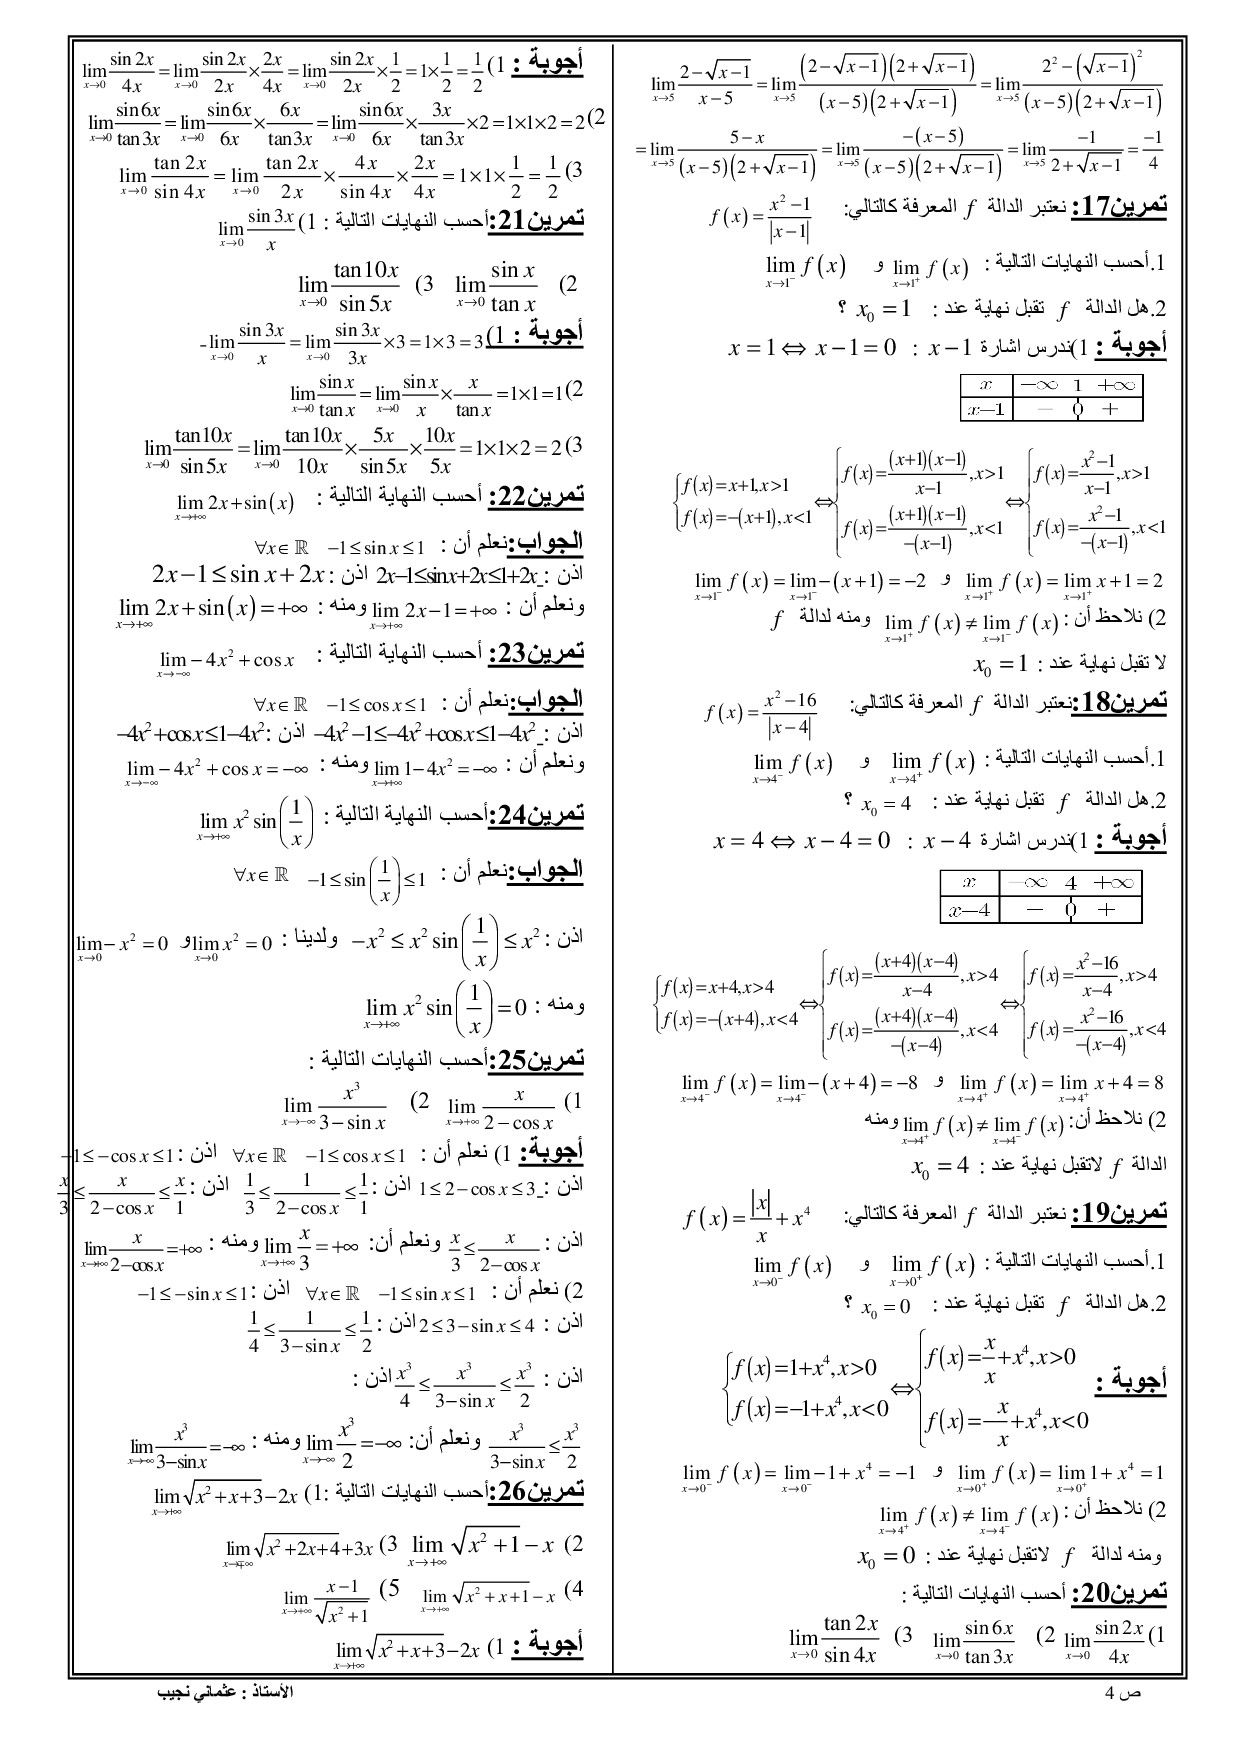 lim_{x→5} (2−√(x−1))/(x−5) = lim_{x→5} ((2−√(x−1))(2+√(x−1)))/((x−5)(2+√(x−1))) = lim_{x→5} (2²−(√(x−1))²)/((x−5)(2+√(x−1)))
= lim_{x→5} (5−x)/((x−5)(2+√(x−1))) = lim_{x→5} (−(x−5))/((x−5)(2+√(x−1))) = lim_{x→5} (−1)/(2+√(x−1)) = −1/4
تمرين17: نعتبر الدالة f المعرفة كالتالي: f(x) = (x²−1)/|x−1|
1.أحسب النهايات التالية : lim_{x→1⁺} f(x) و lim_{x→1⁻} f(x)
2.هل الدالة f تقبل نهاية عند : x₀ = 1 ؟
أجوبة : 1)ندرس اشارة x−1 : x−1=0 ⇔ x=1
x −∞ 1 +∞
x−1 − 0 +
{f(x)=x+1, x>1 ; f(x)=−(x+1), x<1 ⇔ {f(x)=((x+1)(x−1))/(x−1), x>1 ; f(x)=((x+1)(x−1))/(−(x−1)), x<1 ⇔ {f(x)=(x²−1)/(x−1), x>1 ; f(x)=(x²−1)/(−(x−1)), x<1
lim_{x→1⁺} f(x) = lim_{x→1⁺} x+1 = 2 و lim_{x→1⁻} f(x) = lim_{x→1⁻} −(x+1) = −2
2) نلاحظ أن : lim_{x→1⁺} f(x) ≠ lim_{x→1⁻} f(x) ومنه لدالة f
لا تقبل نهاية عند : x₀ = 1
تمرين18:نعتبر الدالة f المعرفة كالتالي: f(x) = (x²−16)/|x−4|
1.أحسب النهايات التالية : lim_{x→4⁺} f(x) و lim_{x→4⁻} f(x)
2.هل الدالة f تقبل نهاية عند : x₀ = 4 ؟
أجوبة : 1)ندرس اشارة x−4 : x−4=0 ⇔ x=4
x −∞ 4 +∞
x−4 − 0 +
{f(x)=x+4, x>4 ; f(x)=−(x+4), x<4 ⇔ {f(x)=((x+4)(x−4))/(x−4), x>4 ; f(x)=((x+4)(x−4))/(−(x−4)), x<4 ⇔ {f(x)=(x²−16)/(x−4), x>4 ; f(x)=(x²−16)/(−(x−4)), x<4
lim_{x→4⁺} f(x) = lim_{x→4⁺} x+4 = 8 و lim_{x→4⁻} f(x) = lim_{x→4⁻} −(x+4) = −8
2) نلاحظ أن: lim_{x→4⁺} f(x) ≠ lim_{x→4⁻} f(x) ومنه
الدالة f لاتقبل نهاية عند : x₀ = 4
تمرين19: نعتبر الدالة f المعرفة كالتالي: f(x) = |x|/x + x⁴
1.أحسب النهايات التالية : lim_{x→0⁺} f(x) و lim_{x→0⁻} f(x)
2.هل الدالة f تقبل نهاية عند : x₀ = 0 ؟
أجوبة : {f(x)=1+x⁴, x>0 ; f(x)=−1+x⁴, x<0 ⇔ {f(x)=x/x+x⁴, x>0 ; f(x)=−x/x+x⁴, x<0
lim_{x→0⁺} f(x) = lim_{x→0⁺} 1+x⁴ = 1 و lim_{x→0⁻} f(x) = lim_{x→0⁻} −1+x⁴ = −1
2) نلاحظ أن : lim_{x→4⁺} f(x) ≠ lim_{x→4⁻} f(x)
ومنه لدالة f لاتقبل نهاية عند : x₀ = 0
تمرين20: أحسب النهايات التالية :
1) lim_{x→0} (sin 2x)/(4x) 2) lim_{x→0} (sin 6x)/(tan 3x) 3) lim_{x→0} (tan 2x)/(sin 4x)
أجوبة : 1) lim_{x→0} (sin 2x)/(4x) = lim_{x→0} (sin 2x)/(2x) × (2x)/(4x) = lim_{x→0} (sin 2x)/(2x) × 1/2 = 1×1/2 = 1/2
2) lim_{x→0} (sin 6x)/(tan 3x) = lim_{x→0} (sin 6x)/(6x) × (6x)/(tan 3x) = lim_{x→0} (sin 6x)/(6x) × (3x)/(tan 3x) × 2 = 1×1×2 = 2
3) lim_{x→0} (tan 2x)/(sin 4x) = lim_{x→0} (tan 2x)/(2x) × (4x)/(sin 4x) × (2x)/(4x) = 1×1×1/2 = 1/2
تمرين21:أحسب النهايات التالية : 1) lim_{x→0} (sin 3x)/x
2) lim_{x→0} (sin x)/(tan x) 3) lim_{x→0} (tan 10x)/(sin 5x)
أجوبة : 1) lim_{x→0} (sin 3x)/x = lim_{x→0} (sin 3x)/(3x) × 3 = 1×3 = 3
2) lim_{x→0} (sin x)/(tan x) = lim_{x→0} (sin x)/x × x/(tan x) = 1×1 = 1
3) lim_{x→0} (tan 10x)/(sin 5x) = lim_{x→0} (tan 10x)/(10x) × (5x)/(sin 5x) × (10x)/(5x) = 1×1×2 = 2
تمرين22: أحسب النهاية التالية : lim_{x→+∞} 2x+sin(x)
الجواب:نعلم أن : −1≤sin x≤1 ∀x∈ℝ
اذن : 2x−1≤sin x+2x≤1+2x اذن : 2x−1≤sin x+2x
ونعلم أن : lim_{x→+∞} 2x−1=+∞ ومنه : lim_{x→+∞} 2x+sin(x)=+∞
تمرين23: أحسب النهاية التالية : lim_{x→−∞} −4x²+cos x
الجواب:نعلم أن : −1≤cos x≤1 ∀x∈ℝ
اذن : −4x²−1≤−4x²+cos x≤1−4x² اذن : −4x²+cos x≤1−4x²
ونعلم أن : lim_{x→+∞} 1−4x²=−∞ ومنه : lim_{x→−∞} −4x²+cos x=−∞
تمرين24:أحسب النهاية التالية : lim_{x→+∞} x² sin(1/x)
الجواب:نعلم أن : −1≤sin(1/x)≤1 ∀x∈ℝ
اذن : −x²≤x² sin(1/x)≤x² ولدينا : lim_{x→0} x²=0 و lim_{x→0} −x²=0
ومنه : lim_{x→+∞} x² sin(1/x)=0
تمرين25:أحسب النهايات التالية :
1) lim_{x→+∞} x/(2−cos x) 2) lim_{x→−∞} x³/(3−sin x)
أجوبة: 1) نعلم أن : −1≤cos x≤1 ∀x∈ℝ اذن : −1≤−cos x≤1
اذن : 1≤2−cos x≤3 اذن : 1/3≤1/(2−cos x)≤1/1 اذن : x/3≤x/(2−cos x)≤x/1
اذن : x/3≤x/(2−cos x) ونعلم أن: lim_{x→+∞} x/3=+∞ ومنه : lim_{x→+∞} x/(2−cos x)=+∞
2) نعلم أن : −1≤sin x≤1 ∀x∈ℝ اذن : −1≤−sin x≤1
اذن : 2≤3−sin x≤4 اذن : 1/4≤1/(3−sin x)≤1/2
اذن : x³/4≤x³/(3−sin x)≤x³/2 اذن :
x³/(3−sin x)≤x³/2 ونعلم أن: lim_{x→−∞} x³/2=−∞ ومنه : lim_{x→−∞} x³/(3−sin x)=−∞
تمرين26:أحسب النهايات التالية :1) lim_{x→+∞} √(x²+x+3)−2x
2) lim_{x→+∞} √(x²+1)−x 3) lim √(x²+2x+4)+3x
4) lim_{x→+∞} √(x²+x+1)−x 5) lim_{x→+∞} (x−1)/√(x²+1)
أجوبة : 1) lim_{x→+∞} √(x²+x+3)−2x
ص 4
الأستاذ : عثماني نجيب